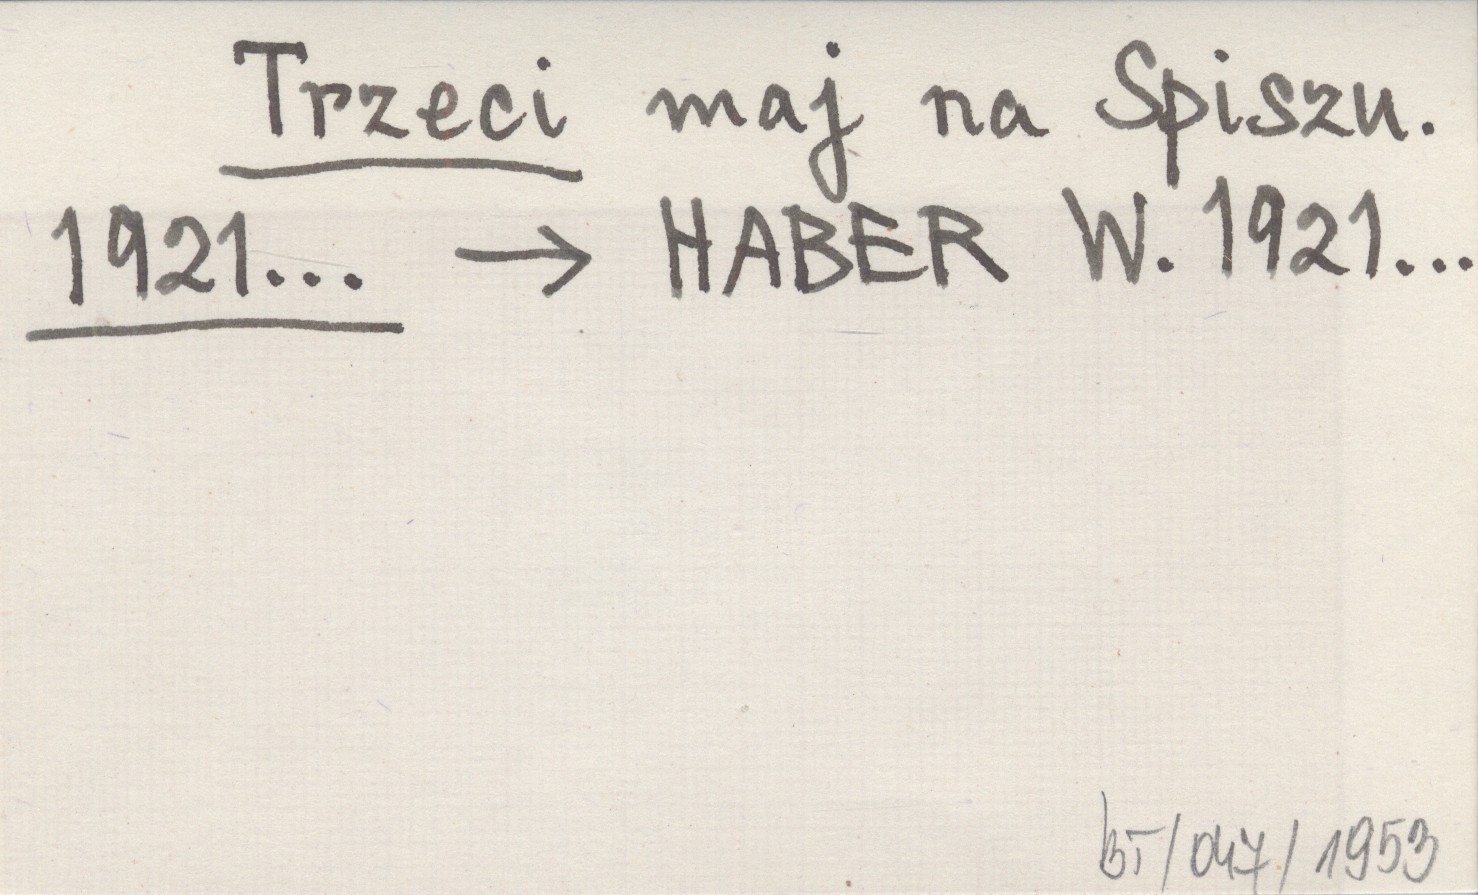 Trzeci maj na Spiszu.
1921... → HABER W. 1921...
BT/047/1953